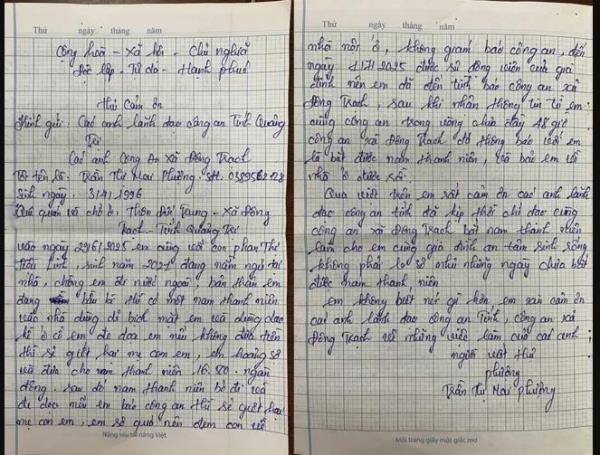 Thứ ngày tháng năm
Cộng hoà - Xã hội - Chủ nghĩa
Độc lập - Tự do - Hạnh phúc
Thư Cảm ơn
Kính gửi: Các anh lãnh đạo công an Tỉnh Quảng
Trị
Các anh Công An Xã Đông Trạch
Tôi tên là: Trần Thị Mai Phương. SĐT:
Sinh ngày: 3/4/1996
Quê quán và chỗ ở: Thôn Đức Trung - Xã Đông
Trạch - Tỉnh Quảng Trị
vào ngày 29/6/2025 em cùng với con phan Thị
Linh, sinh năm 2021 đang nằm ngủ tại
nhà, chồng em đi nước ngoài, bản thân em
đang bầu bí thì có một nam thanh niên
vào nhà dùng bịch mặt em và dùng dao
kề ở cổ em đe doạ em nếu không đưa tiền
thì sẽ giết hai mẹ con em, em hoảng sợ
và đưa cho nam thanh niên 16.500. ngàn
đồng. sau đó nam thanh niên bỏ đi và
đe doạ nếu em báo công an thì sẽ giết hại
mẹ con em, em sợ quá nên đem con về
Nâng niu tài năng Việt
Thứ ngày tháng năm
nhà nội ở, không giám báo công an, đến
ngày 1/7/2025 được sự động viên của gia
đình nên em đã đến trình báo công an xã
Đông Trạch, sau khi nhận thông tin từ em
cùng công an trong vòng chưa đầy 48 giờ
công an xã Đông Trạch đã thông báo với em
là bắt được nam thanh niên, và bảo em về
nhà ở được rồi.
Qua việc trên em rất cảm ơn các anh lãnh
đạo công an tỉnh đã kịp thời chỉ đạo cùng
công an xã Đông Trạch bắt nam thanh niên
làm cho em cùng gia đình an tâm sinh sống
không phải lo sợ như những ngày chưa bắt
được nam thanh niên
em không biết nói gì hơn, em xin cảm ơn
các anh lãnh đạo công an Tỉnh, công an xã
Đông Trạch về những việc làm của các anh
người viết thư
phường
Trần Thị Mai Phường
Mỗi trang giấy một giấc mơ